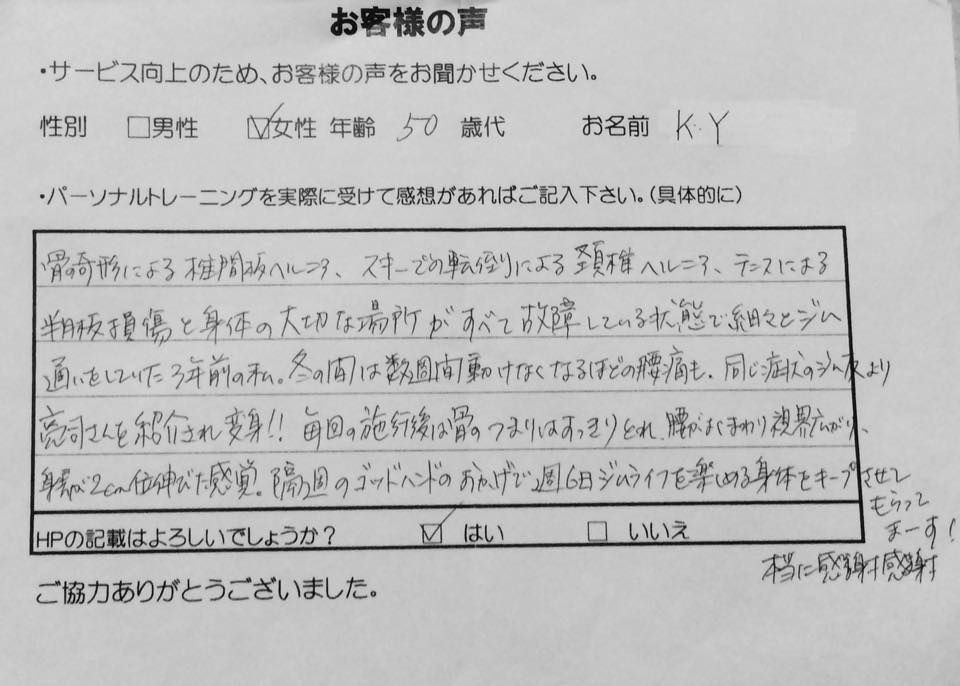 お客様の声
・サービス向上のため、お客様の声をお聞かせください。
性別 □男性 ☑女性 年齢 50 歳代 お名前 K.Y
・パーソナルトレーニングを実際に受けて感想があればご記入下さい。(具体的に)
骨の奇形による椎間板ヘルニア、スキーでの転倒による頚椎ヘルニア、テニスによる
半月板損傷と身体の大切な場所がすべて故障している状態で細々とジム
通いをしていた3年前の私。冬の間は数週間動けなくなるほどの腰痛も、同じ症状のジム友より
亮司さんを紹介され変身!! 毎回の施術後は骨のつまりはすっきりとれ、腰がよくまわり視界広がり、
身長が2cm位伸びた感覚。隔週のゴッドハンドのおかげで週6日ジムライフを楽しめる身体をキープさせて
もらって
まーす!
本当に感謝感謝
HPの記載はよろしいでしょうか? ☑ はい □ いいえ
ご協力ありがとうございました。